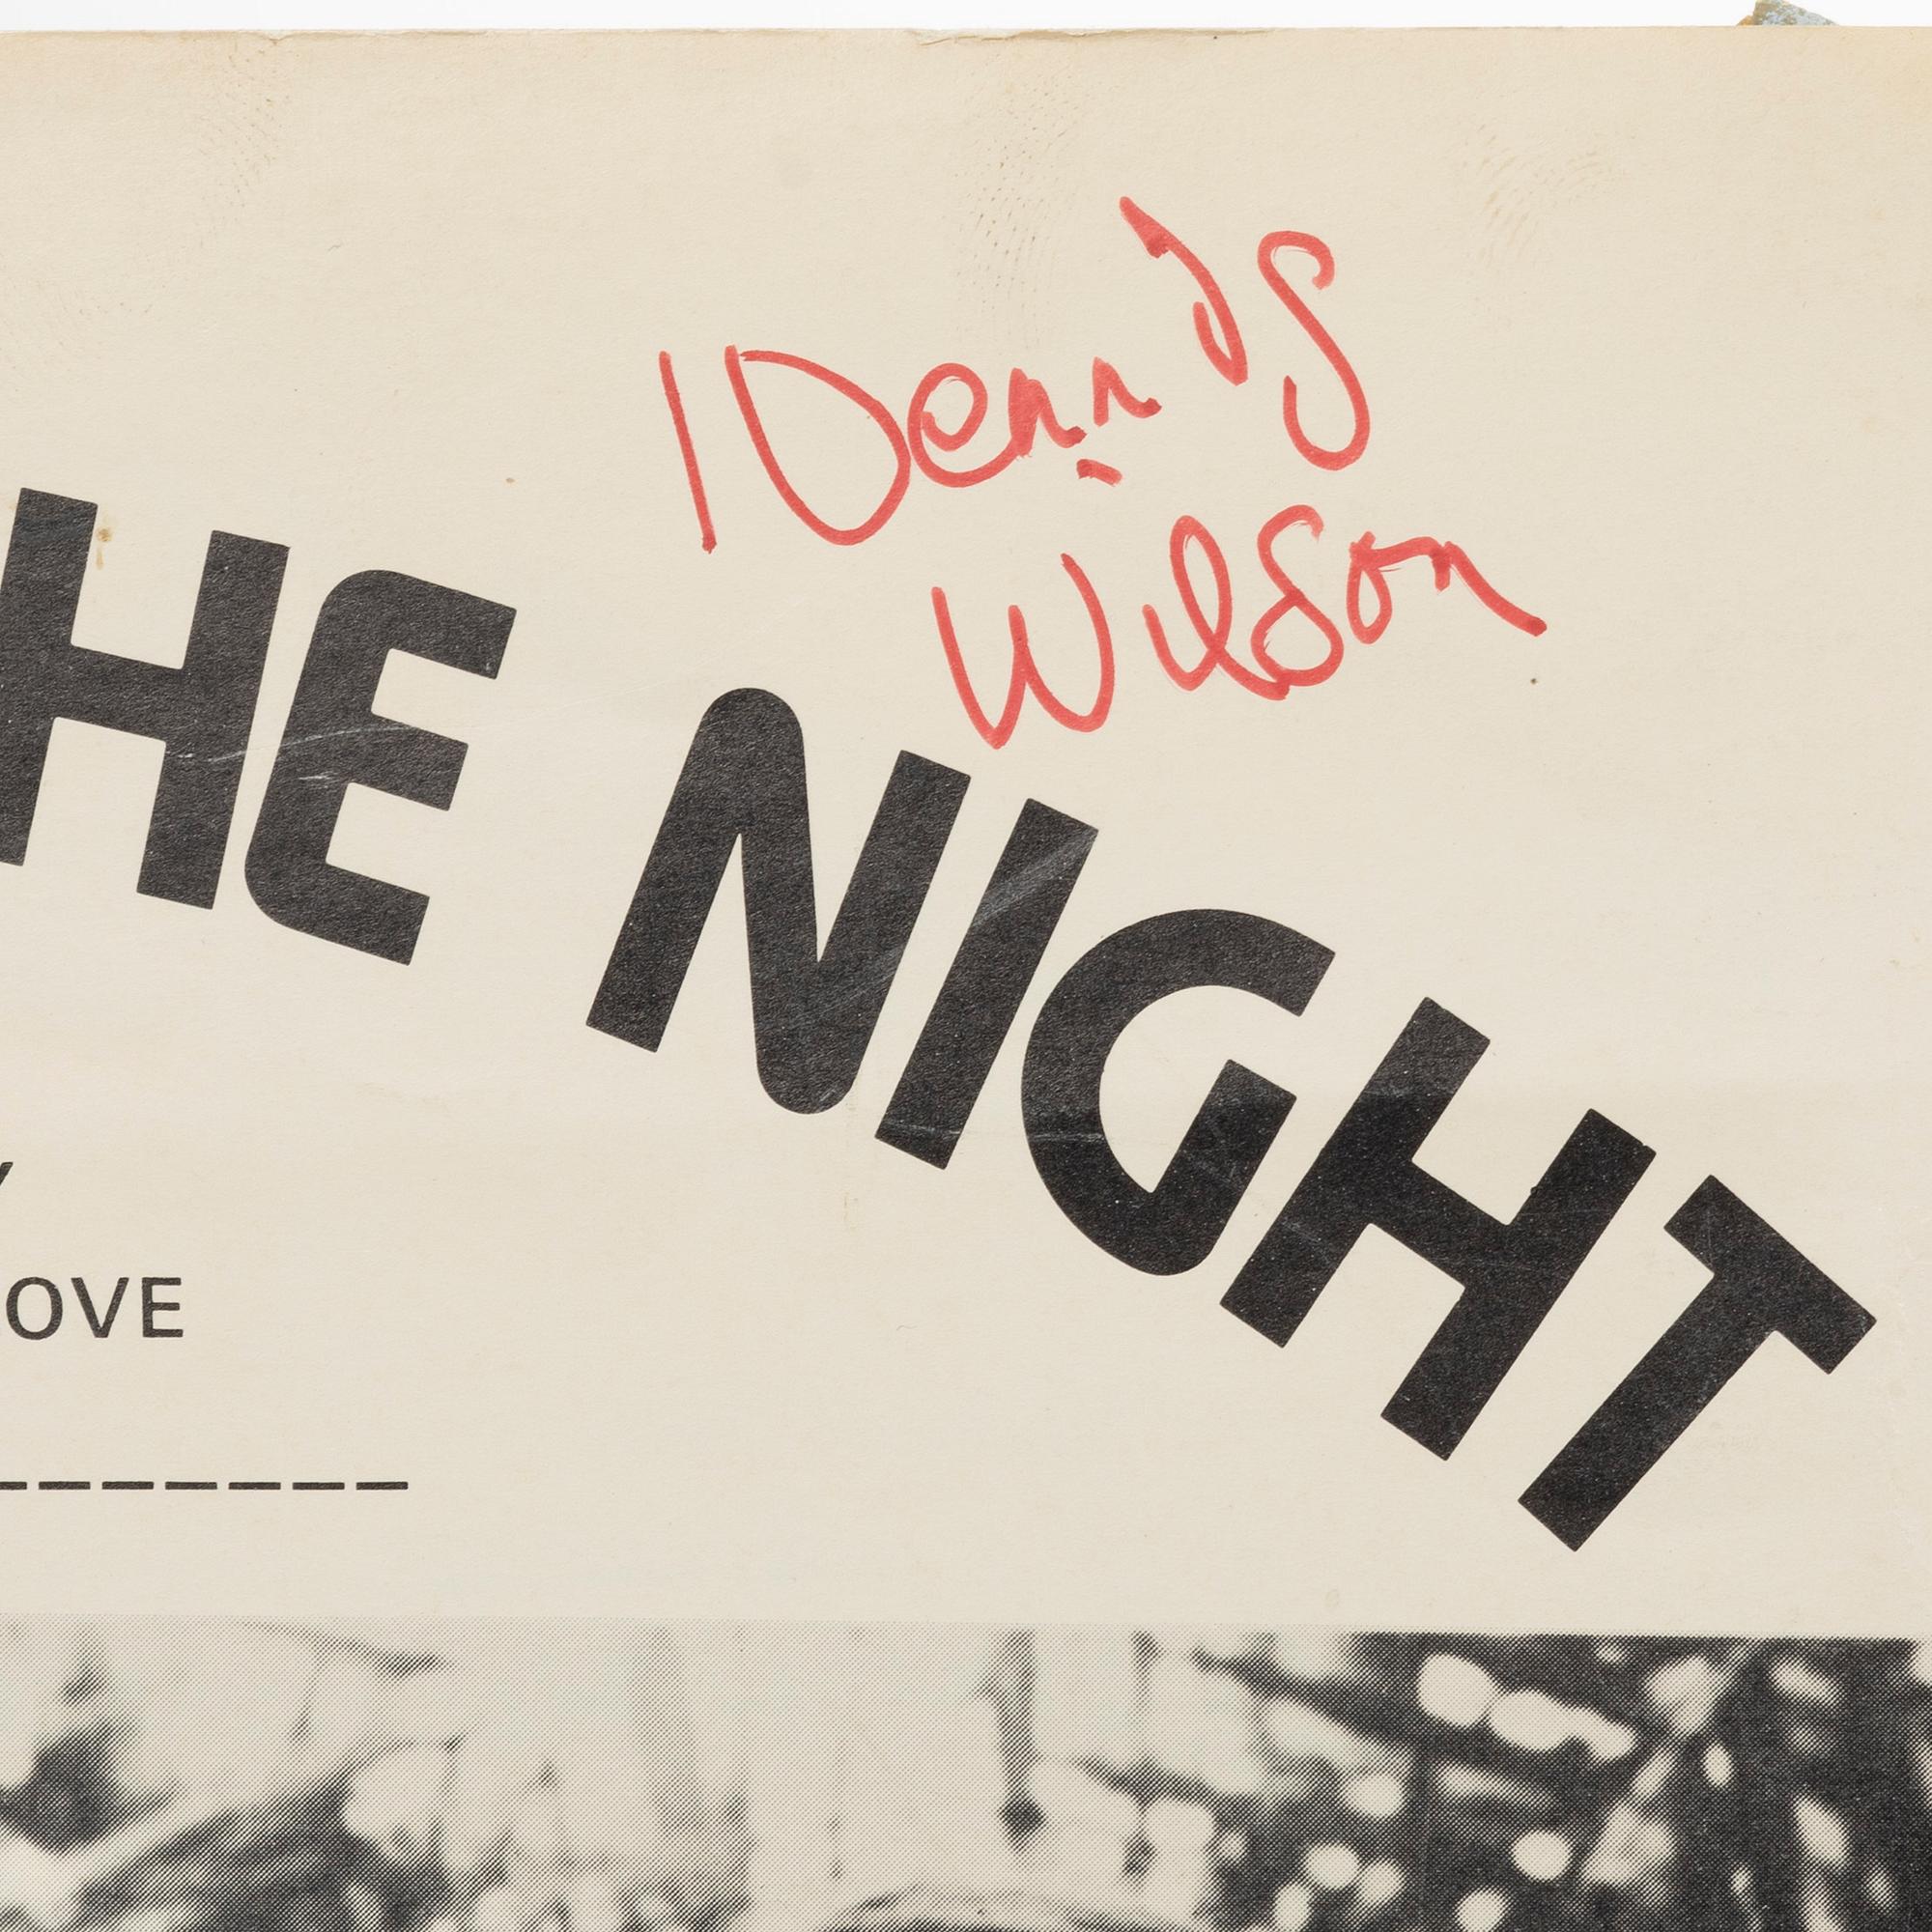 Dennis
Wilson
HE NIGHT
OVE
-------